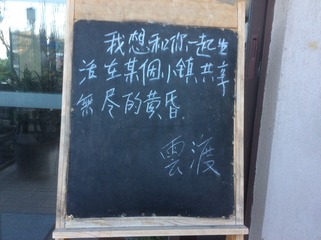 我想和你一起生
活在某個小镇共享
無尽的黄昏
雲渡